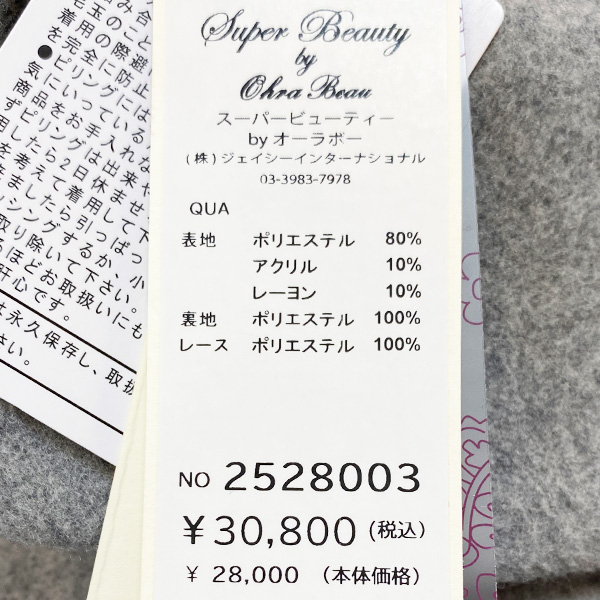 Super Beauty
by
Ohra Beau
スーパービューティー
by オーラボー
(株)ジェイシーインターナショナル
03-3983-7978
QUA
表地 ポリエステル 80%
アクリル 10%
レーヨン 10%
裏地 ポリエステル 100%
レース ポリエステル 100%
NO 2528003
¥30,800 (税込)
¥ 28,000 (本体価格)
み合
のこと
毛玉の
着用の際避
を完全に防止
ピリングには
気にいっている
商品をお手入れな
ずピリングは出来や
用したら2日休ませ
を考えて着用して下
ましたら引っぱっ
ッシングするか、小
取り除いて下さい。
るほどお取扱いにも
肝心です。
は永久保存し、取扱
さい。